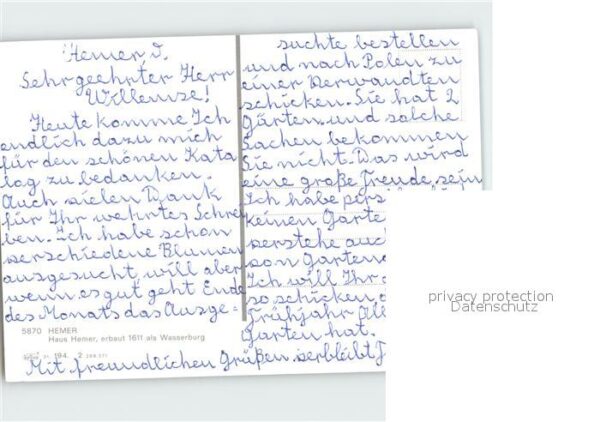 Hemer, d.
Sehrgeehrter Herr
Willemse!
Heute komme Ich
endlich dazu mich
für den schönen Kata
log zu bedanken.
Auch vielen Dank
für Ihr wehrtes Schrei
ben. Ich habe schon
verschiedene Blumen
ausgesucht, will aber
wenn es gut geht Ende
des Monats das Ausge=
suchte bestellen
und nach Polen zu
einer Verwandten
schicken. Sie hat 2
Gärten und solche
Sachen bekommen
Sie nicht. Das wird
eine große Freude sein
Ich habe pers
keinen Garten
verstehe auch
von Garten
Ich will Ihr
so schicken
Frühjahr
Garten hat.
Mit freundlichen Grüßen verbleibt
5870 HEMER
Haus Hemer, erbaut 1611 als Wasserburg
194 2
privacy protection
Datenschutz